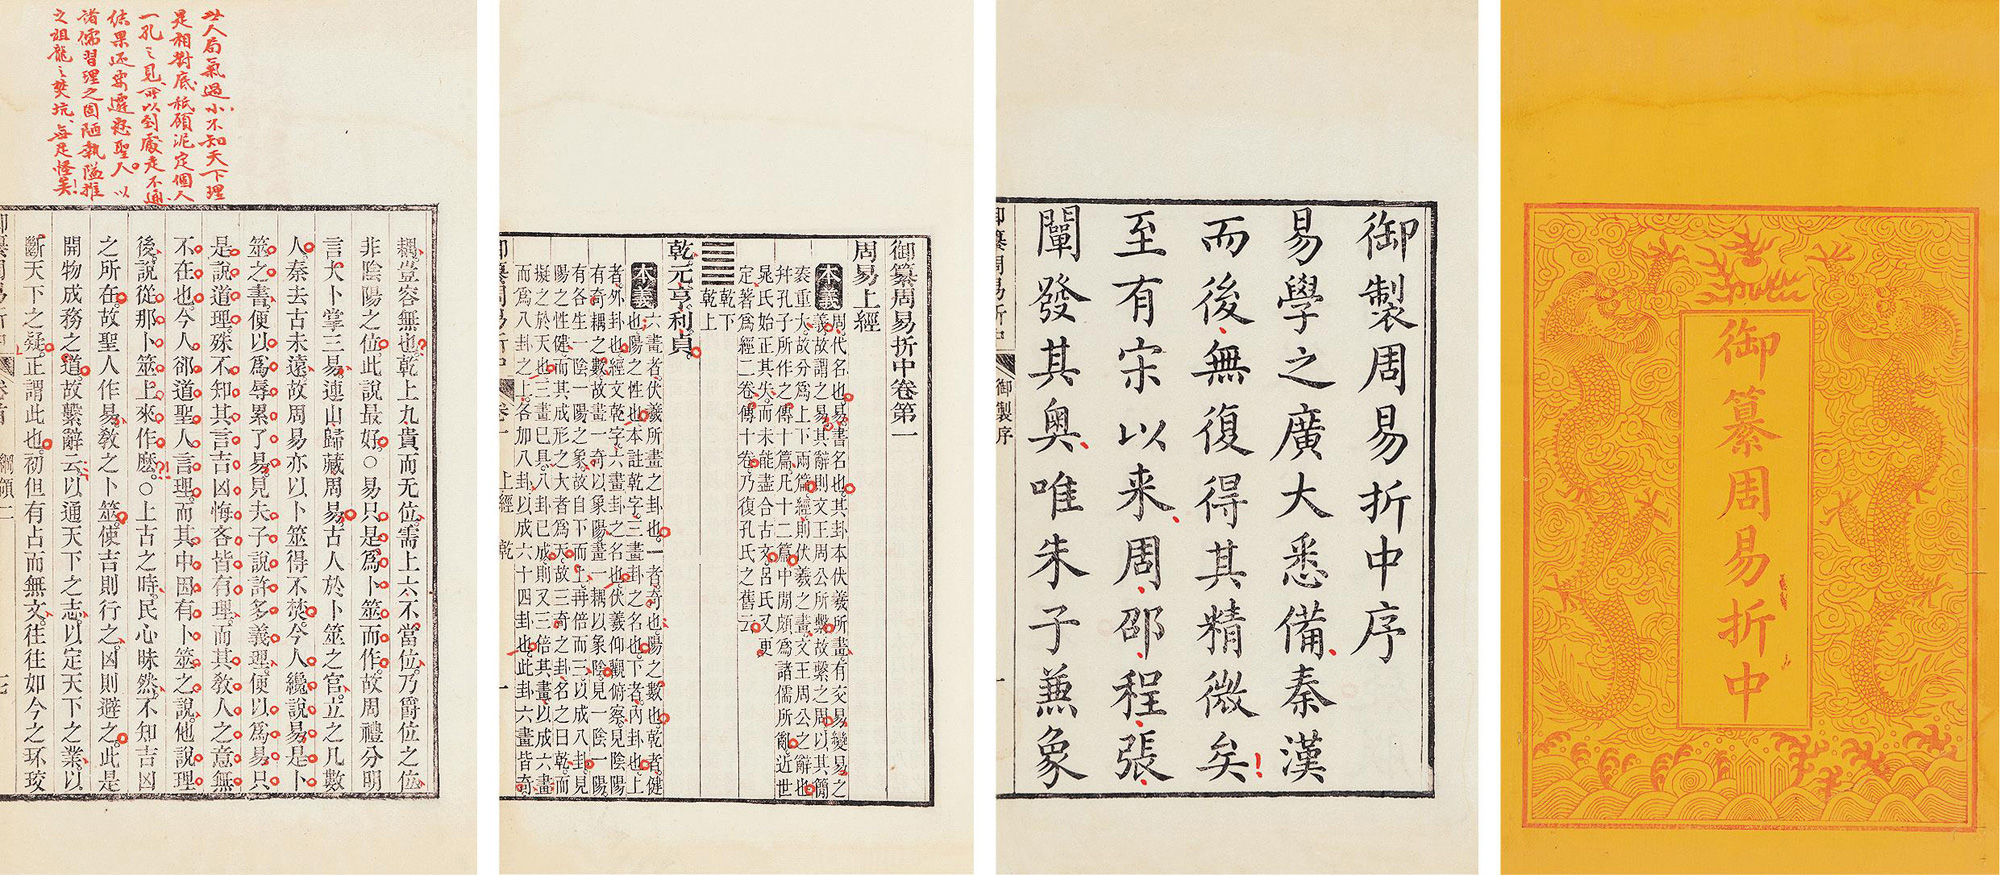 御纂周易折中
御製周易折中序
易學之廣大悉備秦漢
而後無復得其精微矣!
至有宋以来、周、邵、程、張、
闡發其奧、唯朱子兼象
御纂周易折中 御製序 一
御纂周易折中卷第一
周易上經
本義 周代名也易書名也其卦本伏羲所畫有交易變易之
義故謂之易其辭則文王周公所繫故繫之周以其簡
袠重大故分爲上下兩篇經則伏羲之畫文王周公之辭也
幷孔子所作之傳十篇凡十二篇中閒頗爲諸儒所亂近世
晁氏始正其失而未能盡合古文呂氏又更
定著爲經二卷傳十卷乃復孔氏之舊云
䷀ 乾下
乾上
乾元亨利貞
本義 六畫者伏羲所畫之卦也一者奇也陽之數也乾者健
也陽之性也本註乾字三畫卦之名也下者內卦也上
者外卦也經文乾字六畫卦之名也伏羲仰觀俯察見陰陽
有奇耦之數故畫一奇以象陽畫一耦以象陰見一陰一陽
有各生一陰一陽之象故自下而上再倍而三以成八卦見
陽之性健而其成形之大者爲天故三奇之卦名之曰乾而
擬之於天也三畫已具八卦已成則又三倍其畫以成六畫
而爲八卦之上各加八卦以成六十四卦也此卦六畫皆奇
御纂周易折中 卷一 上經 乾 一
世人局氣過小不知天下理
是相對底祇願泥定個人
一孔之見所以到處走不通
結果还要遷怒聖人。以
諸儒習理之固陋執隘推
之祖龍之焚坑、無足怪矣!
耦豈容無也乾上九貴而无位需上六不當位乃爵位之位
非陰陽之位此說最好○易只是爲卜筮而作故周禮分明
言太卜掌三易連山歸藏周易古人於卜筮之官立之凡數
人秦去古未遠故周易亦以卜筮得不焚今人纔說易是卜
筮之書便以爲辱累了易見夫子說許多義理便以爲易只
是說道理殊不知其言吉凶悔吝皆有理而其敎人之意無
不在也今人卻道聖人言理而其中因有卜筮之說他說理
後說從那卜筮上來作麽?!○上古之時民心昧然不知吉凶
之所在故聖人作易敎之卜筮使吉則行之凶則避之此是
開物成務之道故繫辭云以通天下之志以定天下之業以
斷天下之疑正謂此也初但有占而無文往往如今之环珓
御纂周易折中 卷首 綱領二